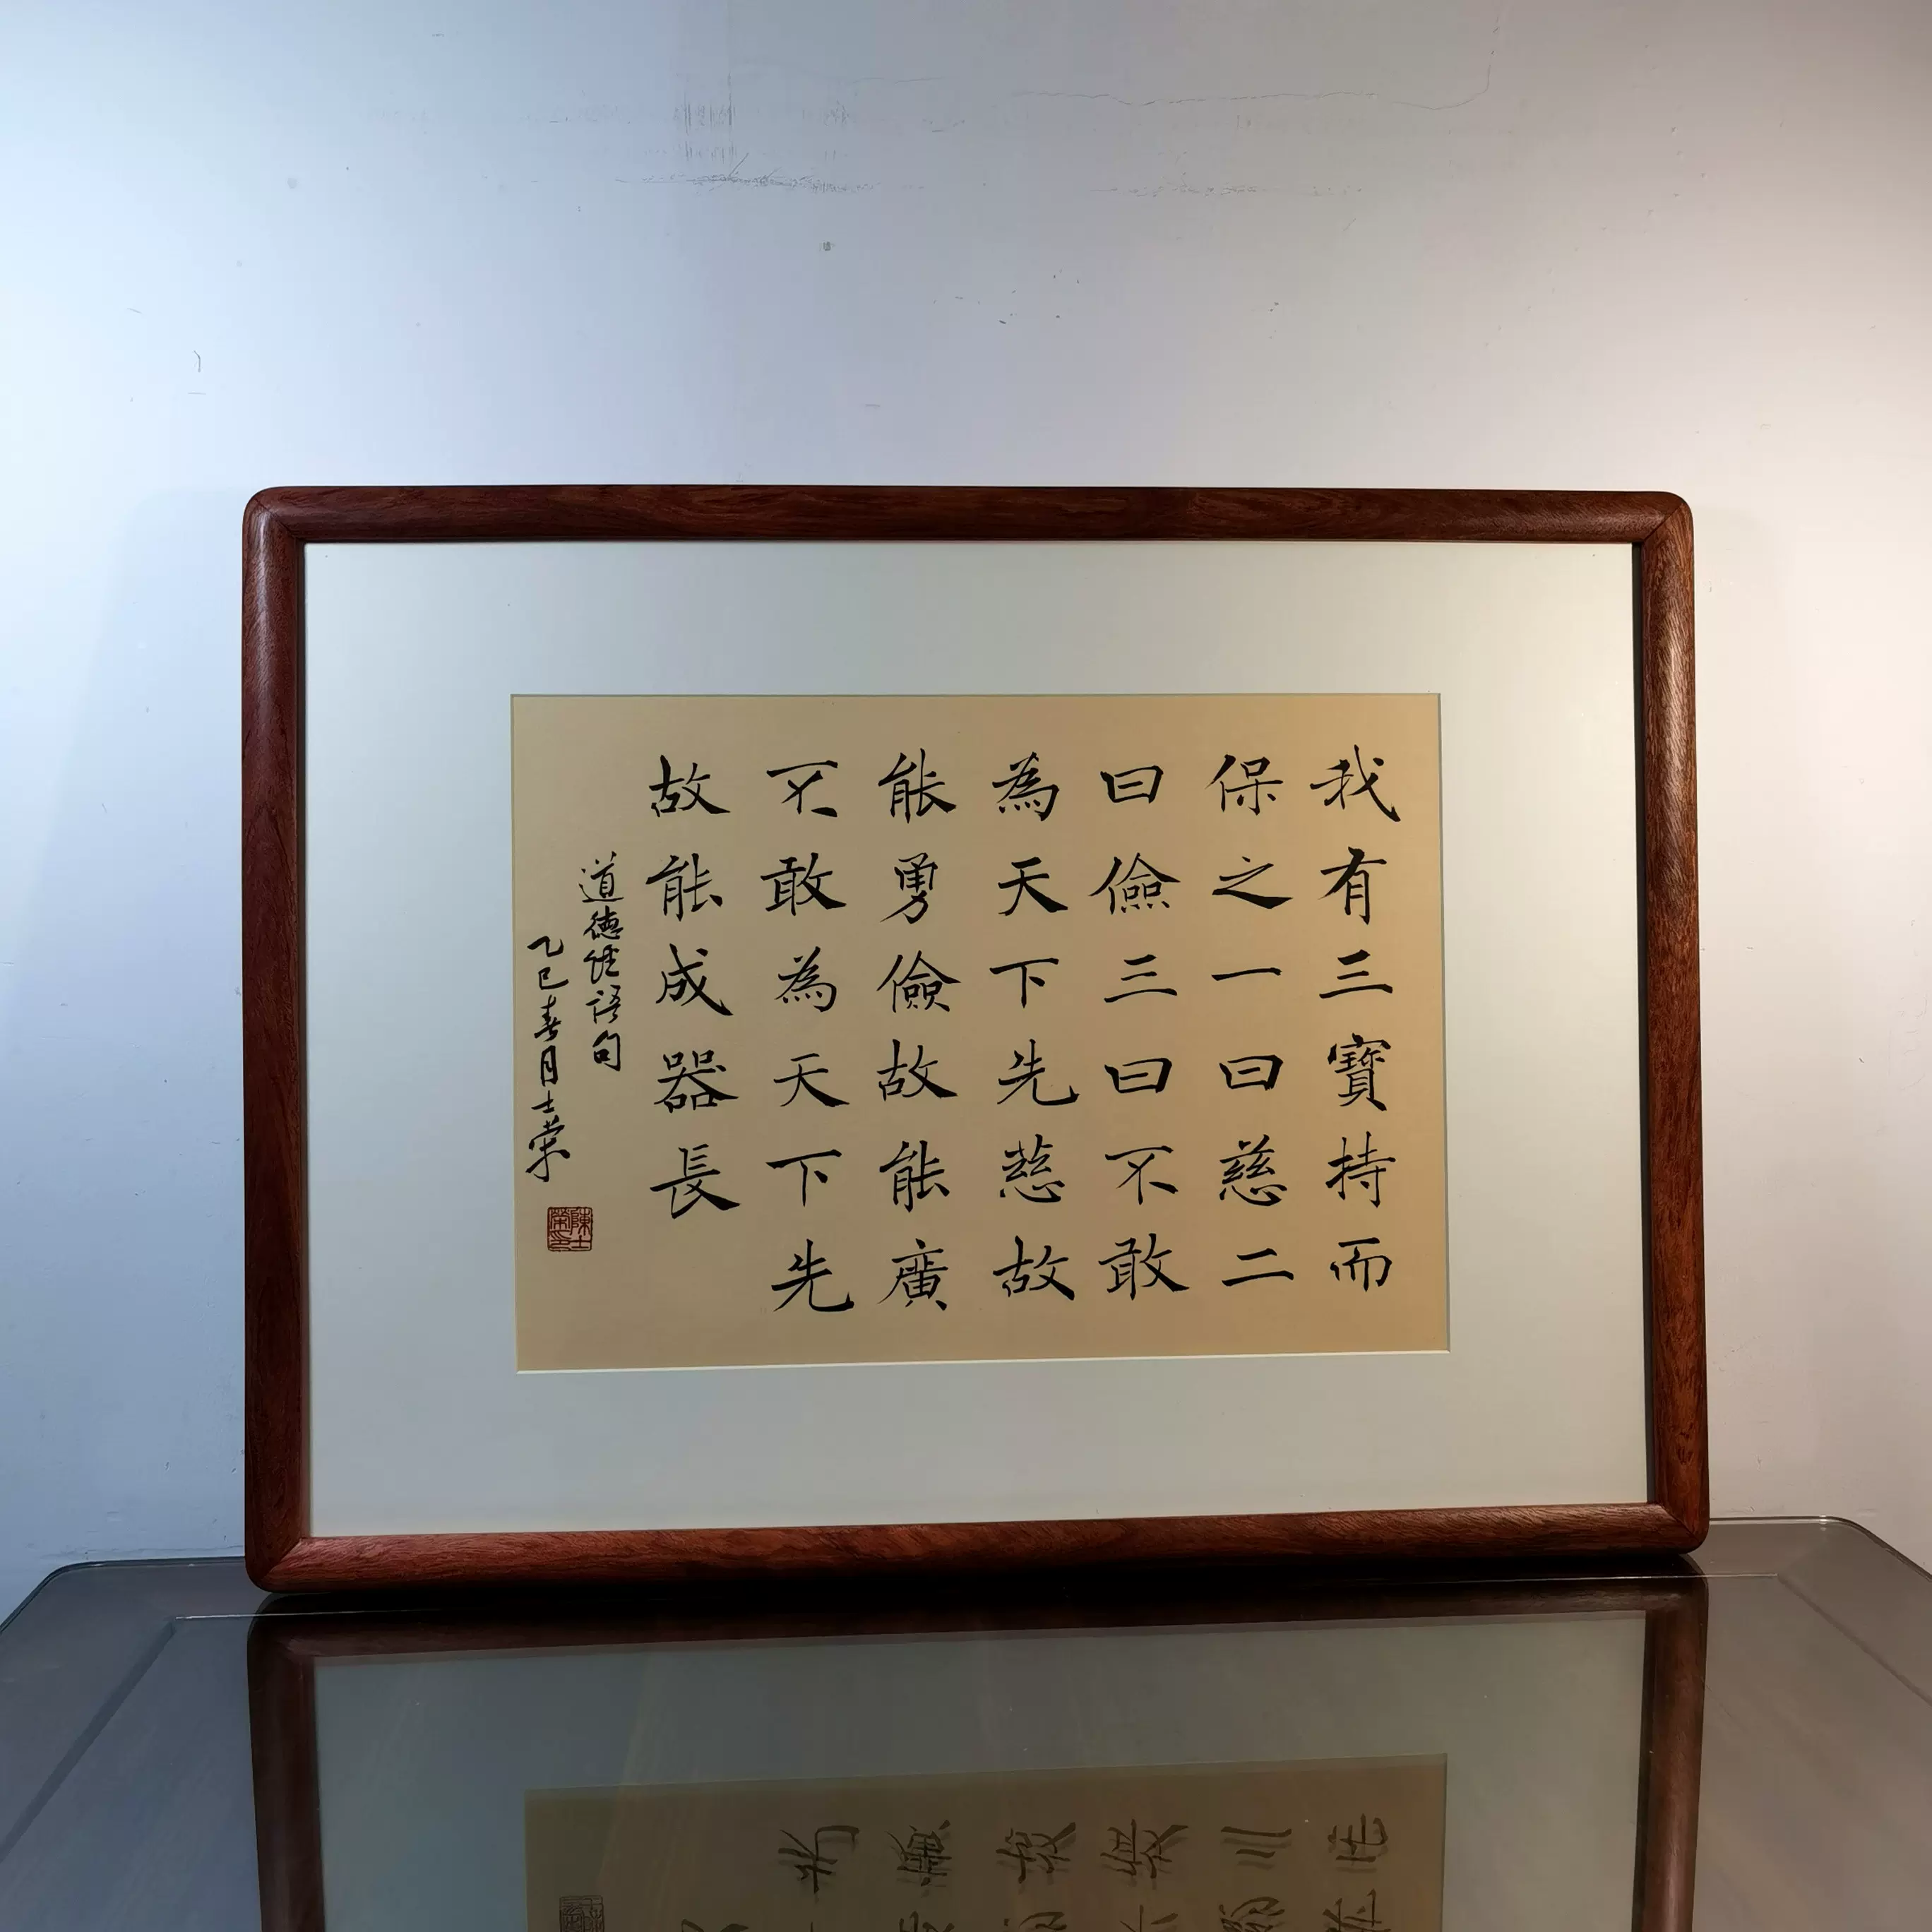 我有三寶持而
保之一曰慈二
曰儉三曰不敢
為天下先慈故
能勇儉故能廣
不敢為天下先
故能成器長
道德經語句
乙巳春月士榮
陳士榮印